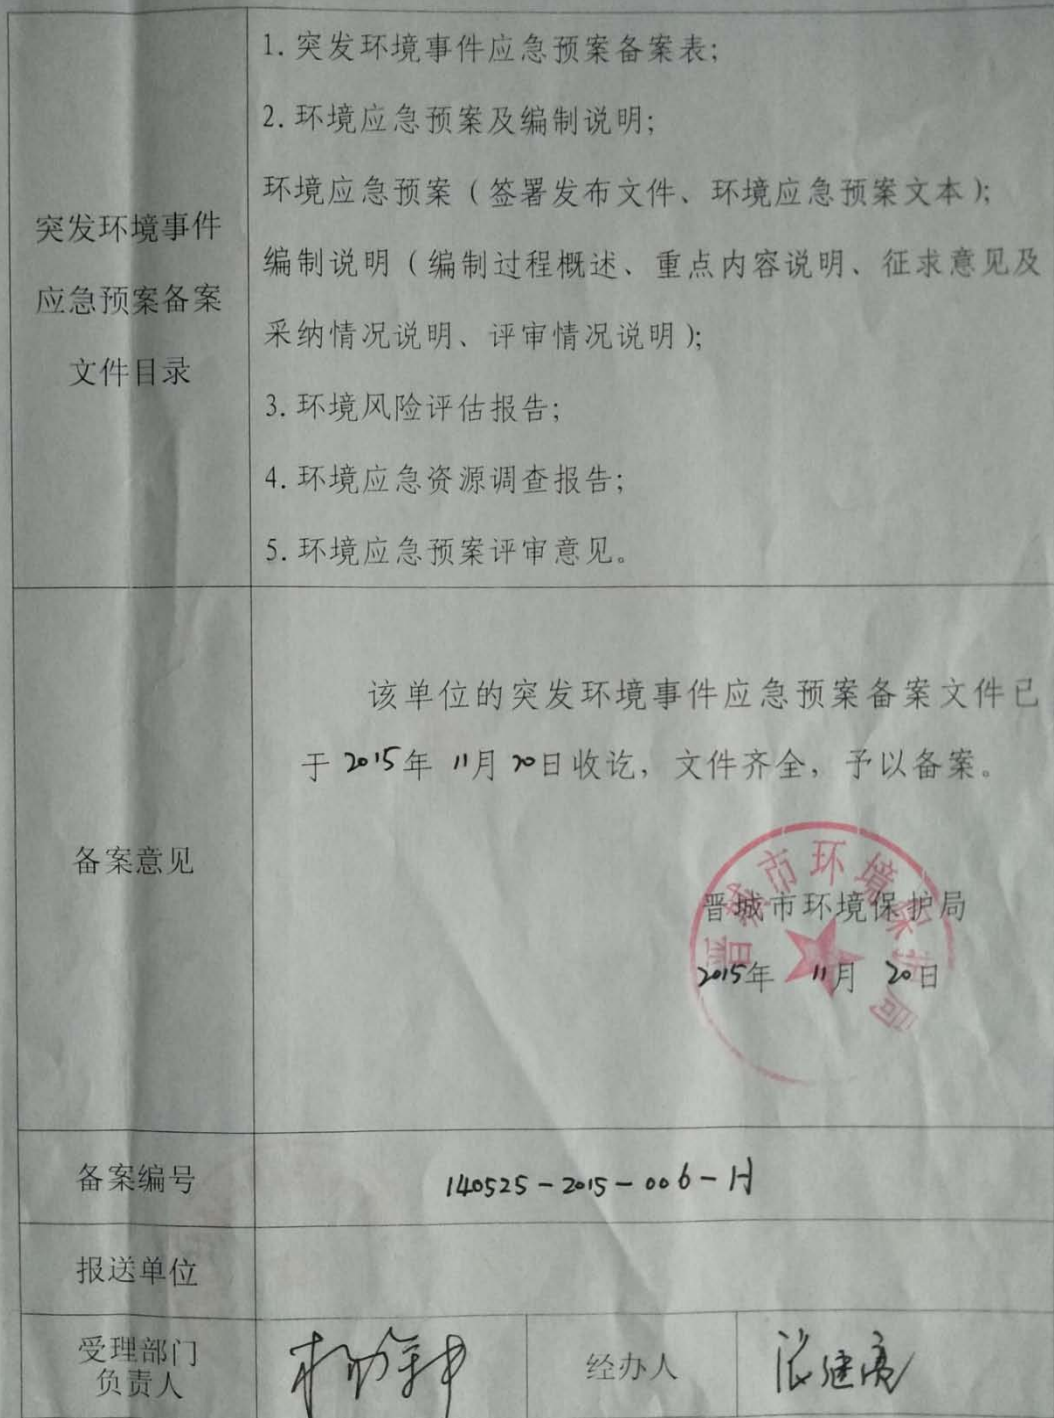 突发环境事件
应急预案备案
文件目录
1. 突发环境事件应急预案备案表;
2. 环境应急预案及编制说明;
环境应急预案（签署发布文件、环境应急预案文本）;
编制说明（编制过程概述、重点内容说明、征求意见及
采纳情况说明、评审情况说明）;
3. 环境风险评估报告;
4. 环境应急资源调查报告;
5. 环境应急预案评审意见。
备案意见
该单位的突发环境事件应急预案备案文件已
于2015年 11月 20日收讫，文件齐全，予以备案。
晋城市环境保护局
晋城市环境保护局
2015年 11月 20日
备案编号
140525-2015-006-H
报送单位
受理部门
负责人
经办人